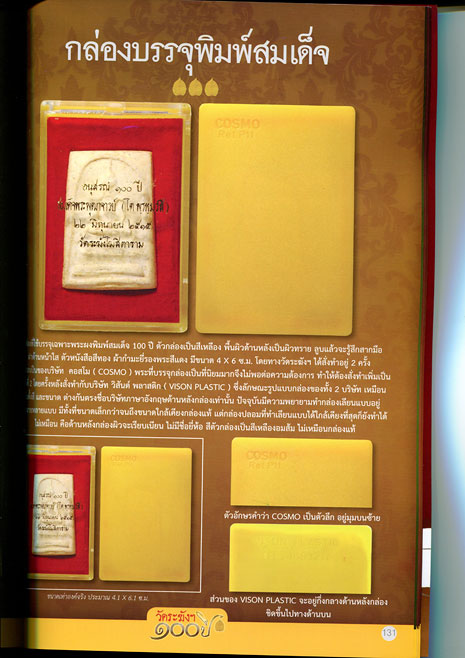 กล่องบรรจุพิมพ์สมเด็จ
COSMO
Ref.P11
อนุสรณ์ ๑๐๐ ปี
(โต พรหมรังสี)
๒๒ มิถุนายน ๒๕๑๕
วัดระฆังโฆสิตาราม
ใช้บรรจุเฉพาะพระผงพิมพ์สมเด็จ 100 ปี ตัวกล่องเป็นสีเหลือง พื้นผิวด้านหลังเป็นผิวทราย ลูบแล้วจะรู้สึกสากมือ
ด้านหน้าใส ตัวหนังสือสีทอง ผ้ากำมะยี่รองพระสีแดง มีขนาด 4 X 6 ซ.ม. โดยทางวัดระฆังฯ ได้สั่งทำอยู่ 2 ครั้ง
ของบริษัท คอสโม ( COSMO ) พระที่บรรจุกล่องเป็นที่นิยมมากจึงไม่พอต่อความต้องการ ทำให้ต้องสั่งทำเพิ่มเป็น
โดยครั้งหลังสั่งทำกับบริษัท วิสันท์ พลาสติก ( VISON PLASTIC ) ซึ่งลักษณะรูปแบบกล่องของทั้ง 2 บริษัท เหมือน
และขนาด ต่างกันตรงชื่อบริษัทภาษาอังกฤษด้านหลังกล่องเท่านั้น ปัจจุบันมีความพยายามทำกล่องเลียนแบบอยู่
หลายแบบ มีทั้งที่ขนาดเล็กกว่าจนถึงขนาดใกล้เคียงกล่องแท้ แต่กล่องปลอมที่ทำเลียนแบบได้ใกล้เคียงที่สุดก็ยังทำได้
ไม่เหมือน คือด้านหลังกล่องผิวจะเรียบเนียน ไม่มีชื่อยี่ห้อ สีตัวกล่องเป็นสีเหลืองอมส้ม ไม่เหมือนกล่องแท้
COSMO
Ref.P11
ตัวอักษรคำว่า COSMO เป็นตัวลึก อยู่มุมบนซ้าย
ส่วนของ VISON PLASTIC จะอยู่กึ่งกลางด้านหลังกล่อง
ชิดขึ้นไปทางด้านบน
ขนาดเท่าองค์จริง ประมาณ 4.1 X 6.1 ซ.ม.
วัดระฆังฯ
๑๐๐ ปี
131